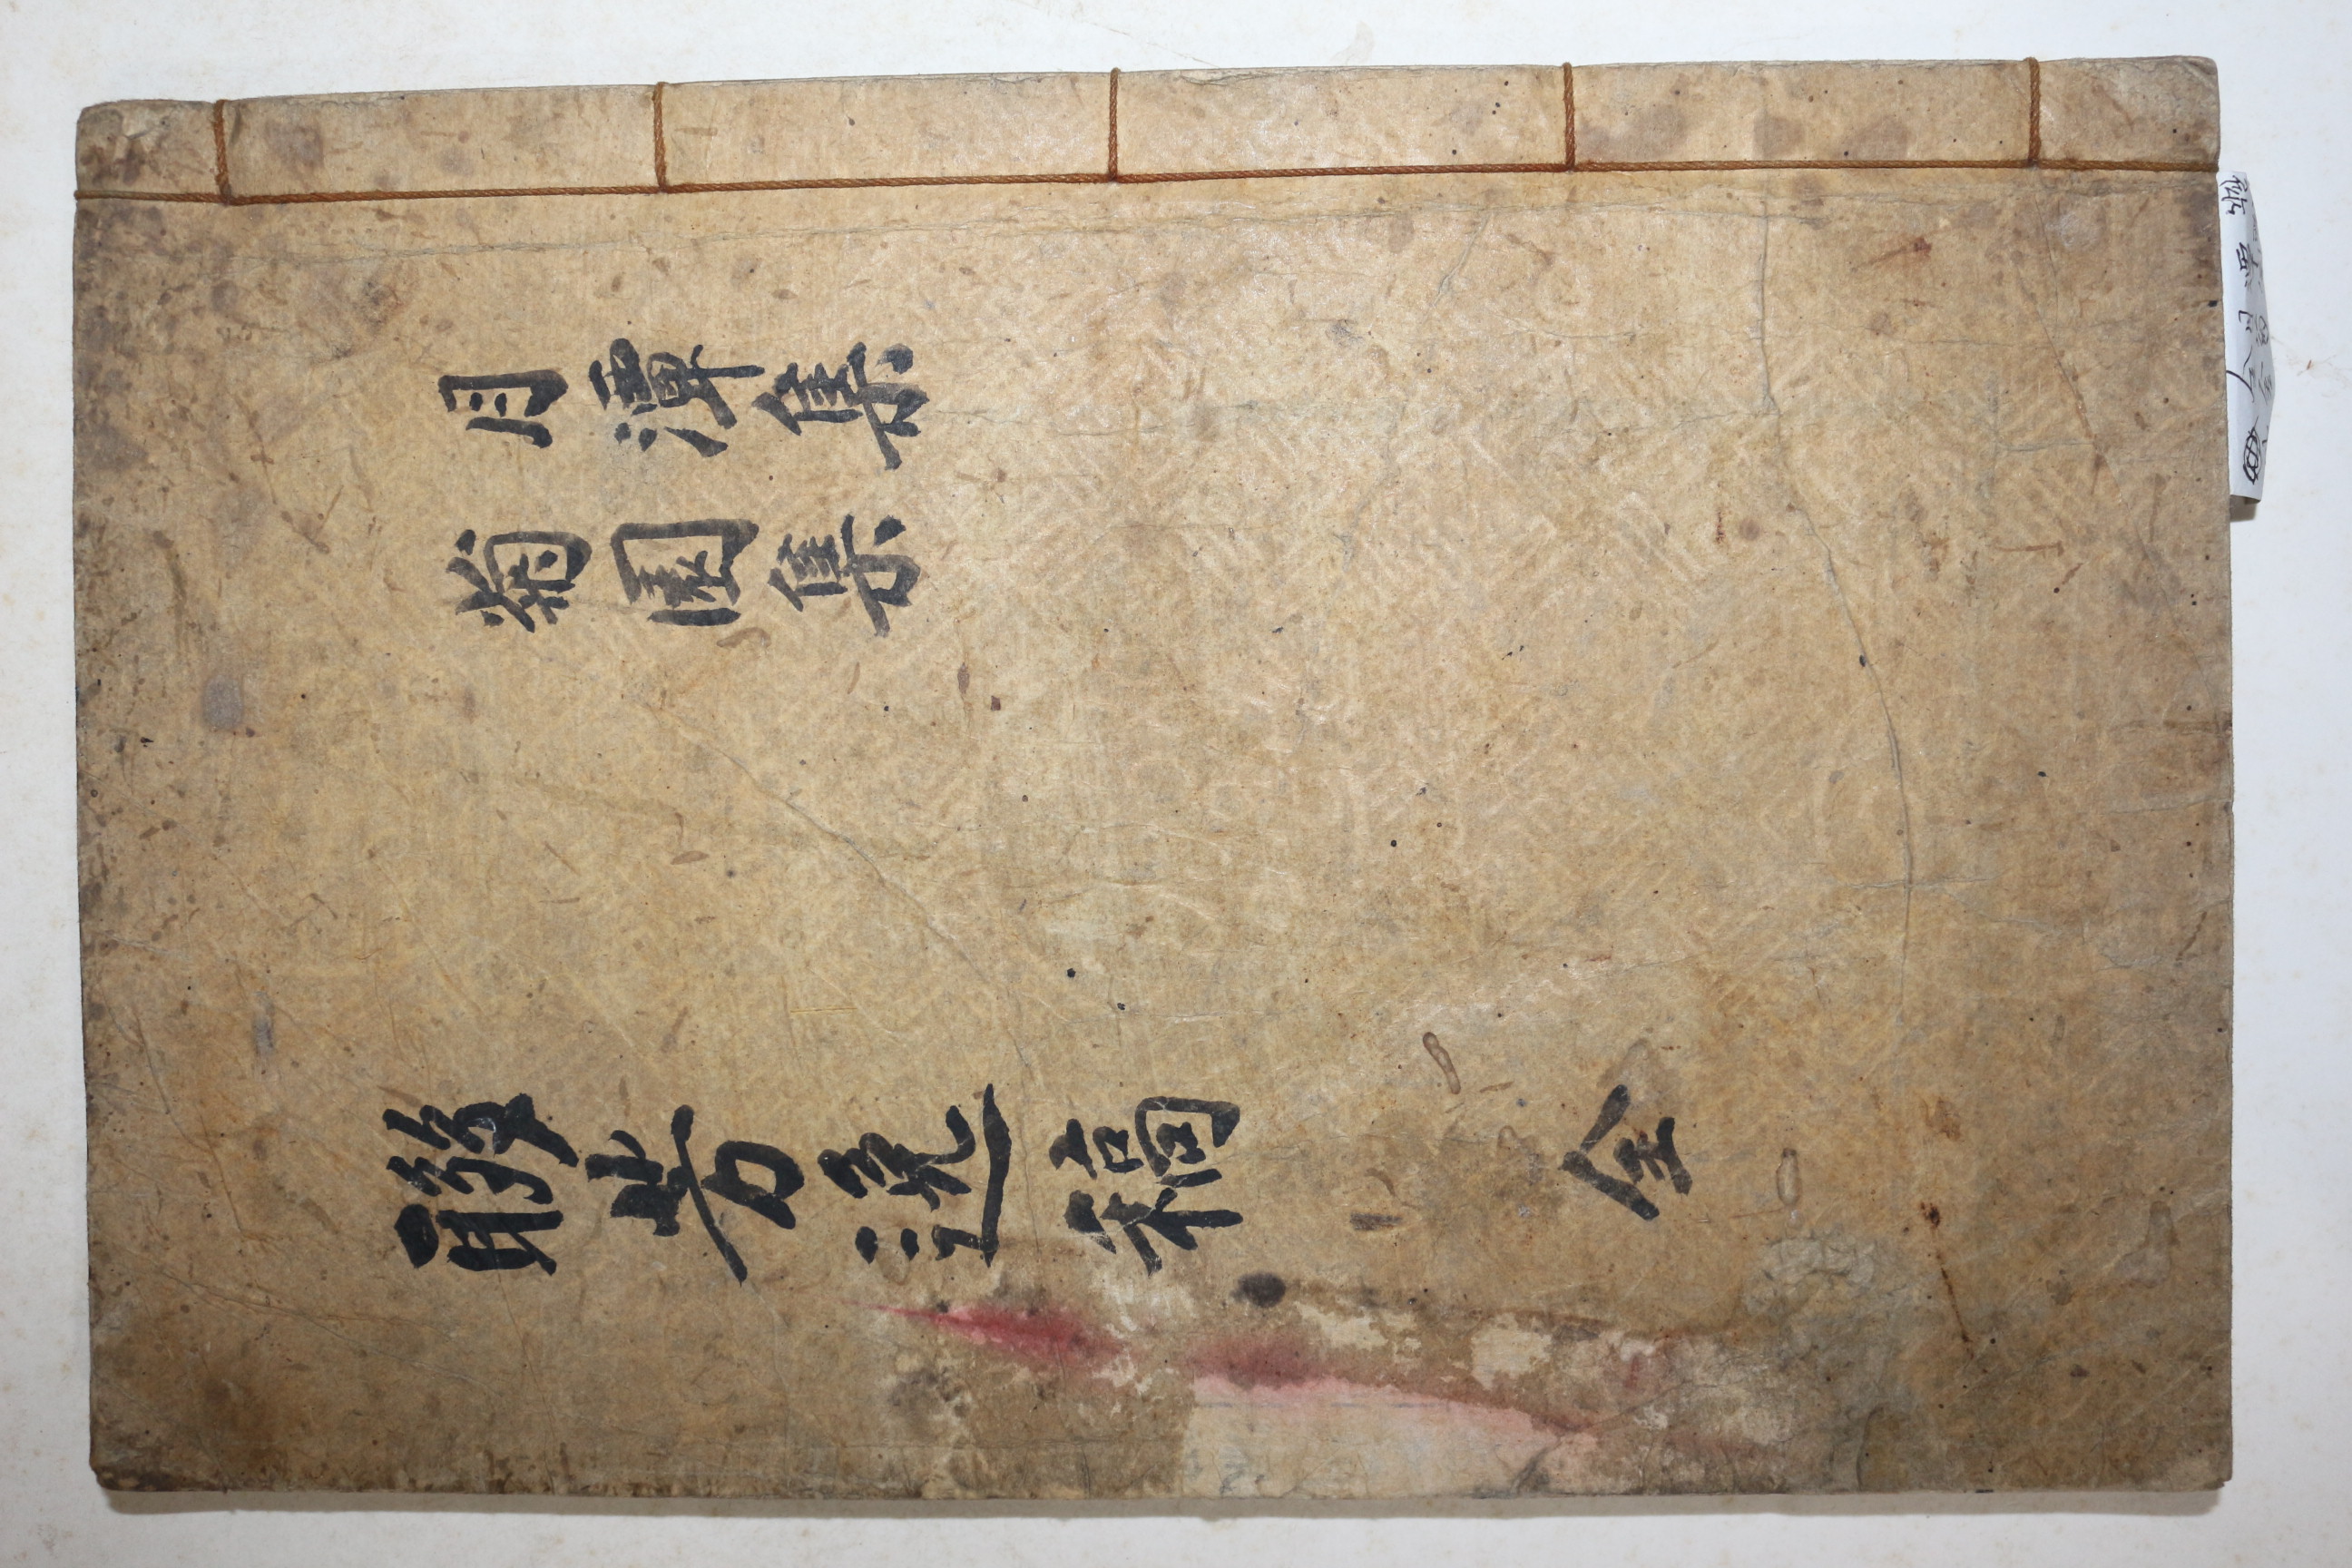 月潭集
菊園集
聯芳逸稿 全